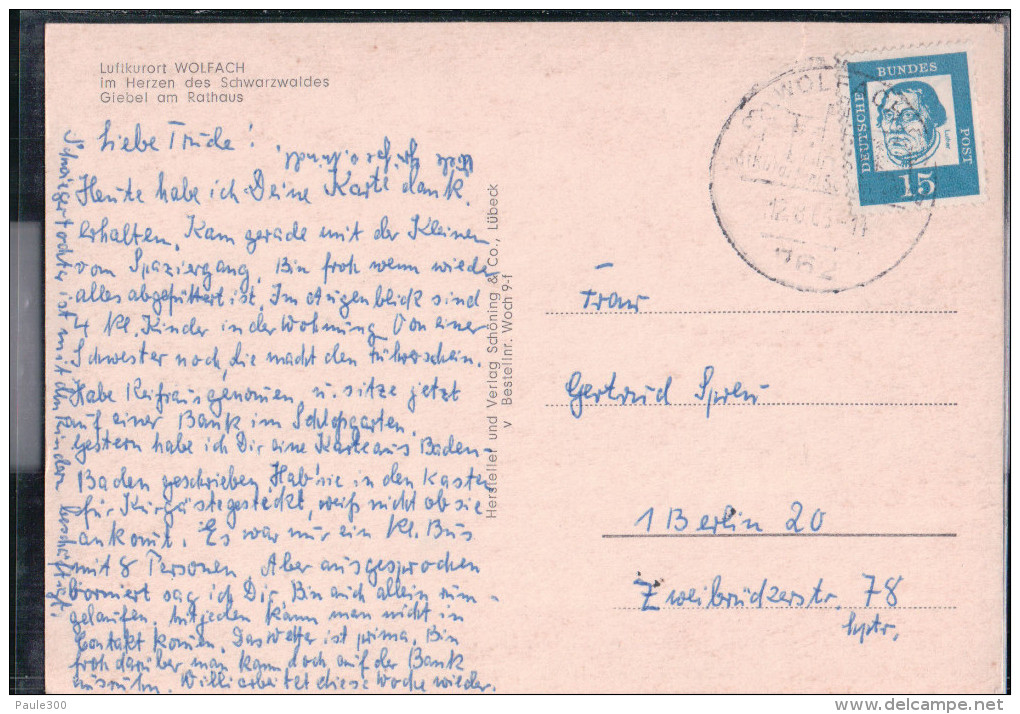 Luftkurort WOLFACH
im Herzen des Schwarzwaldes
Giebel am Rathaus
Liebe Trude!
Heute habe ich Deine Karte dank.
erhalten. Kam gerade mit der Kleinen
vom Spaziergang. Bin froh wenn wieder
alles abgefüttert ist. Im Augenblick sind
4 Kl. Kinder in der Wohnung. Von einer
Schwester noch, die macht den Führerschein.
Habe Reißausgenomen, u. sitze jetzt
auf einer Bank im Schloßgarten.
Gestern habe ich Dir eine Karte aus Baden-
Baden geschrieben. Hab' sie in den Kasten
für Kurgäste gesteckt, weiß nicht ob sie
ankomt. Es war nur ein Kl. Bus
mit 8 Personen. Aber ausgesprochen
borniert sag ich Dir. Bin auch allein rum-
gelaufen. Mit jeden kann man nicht in
Contakt komen. Das Wetter ist prima. Bin
froh darüber man kann doch auf der Bank
ausruhn. Willi arbeitet diese Woche wieder.
Schwiegertochter ist mit den Kindern beschäftigt.
Hersteller und Verlag Schöning & Co., Lübeck
v Bestellnr. Woch 9-f
WOLFACH
762
DEUTSCHE
BUNDES
POST
Luther
15
Frau
Gertrud Spreu
1 Berlin 20
Zweibrückerstr. 78
hptr.
Paule300
delcampe.net